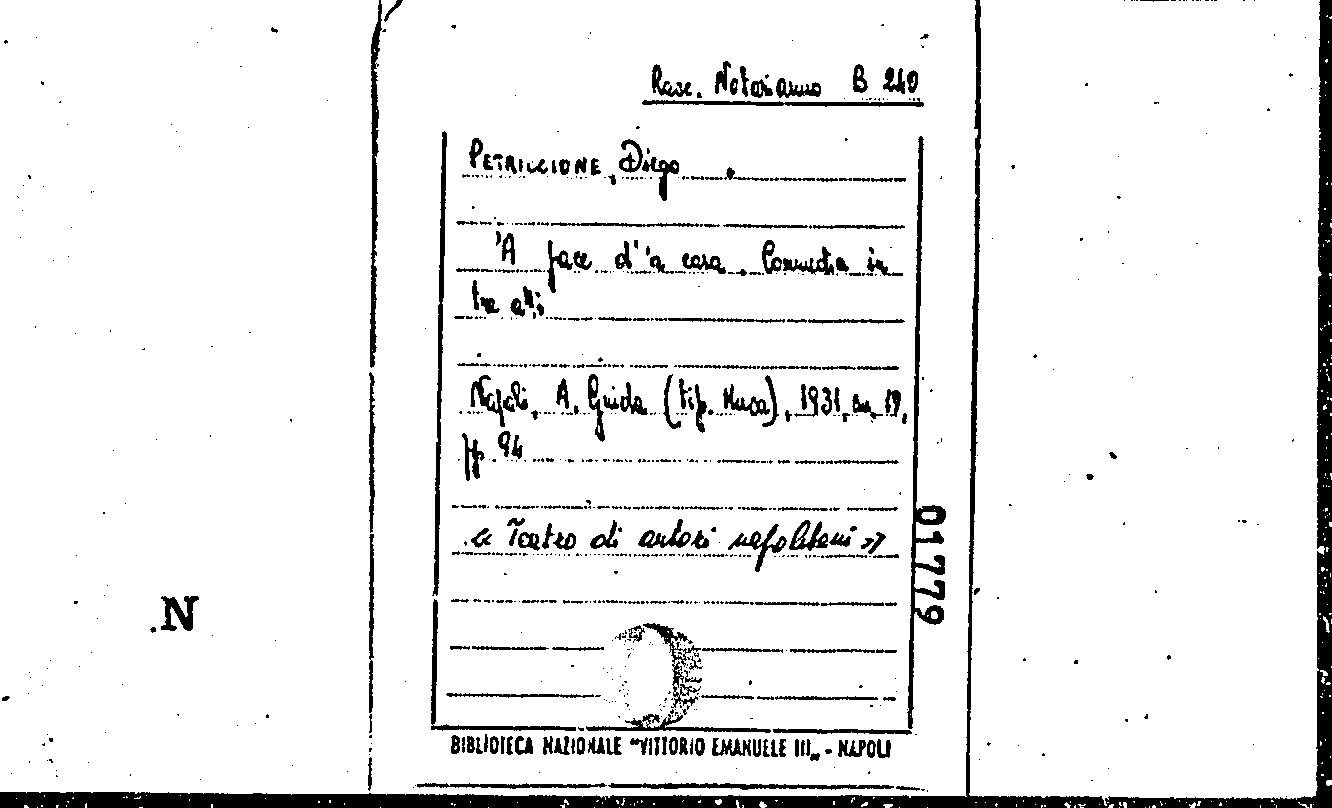 Racc. Notarianno B 240
PETRICCIONE, Diego.
'A face d''a casa. Commedia in
tre atti
Napoli, A. Guida (tip. Musca), 1931, cm. 19,
pp. 94
« Teatro di autori napoletani »
01779
N
BIBLIOTECA NAZIONALE "VITTORIO EMANUELE III„ - NAPOLI